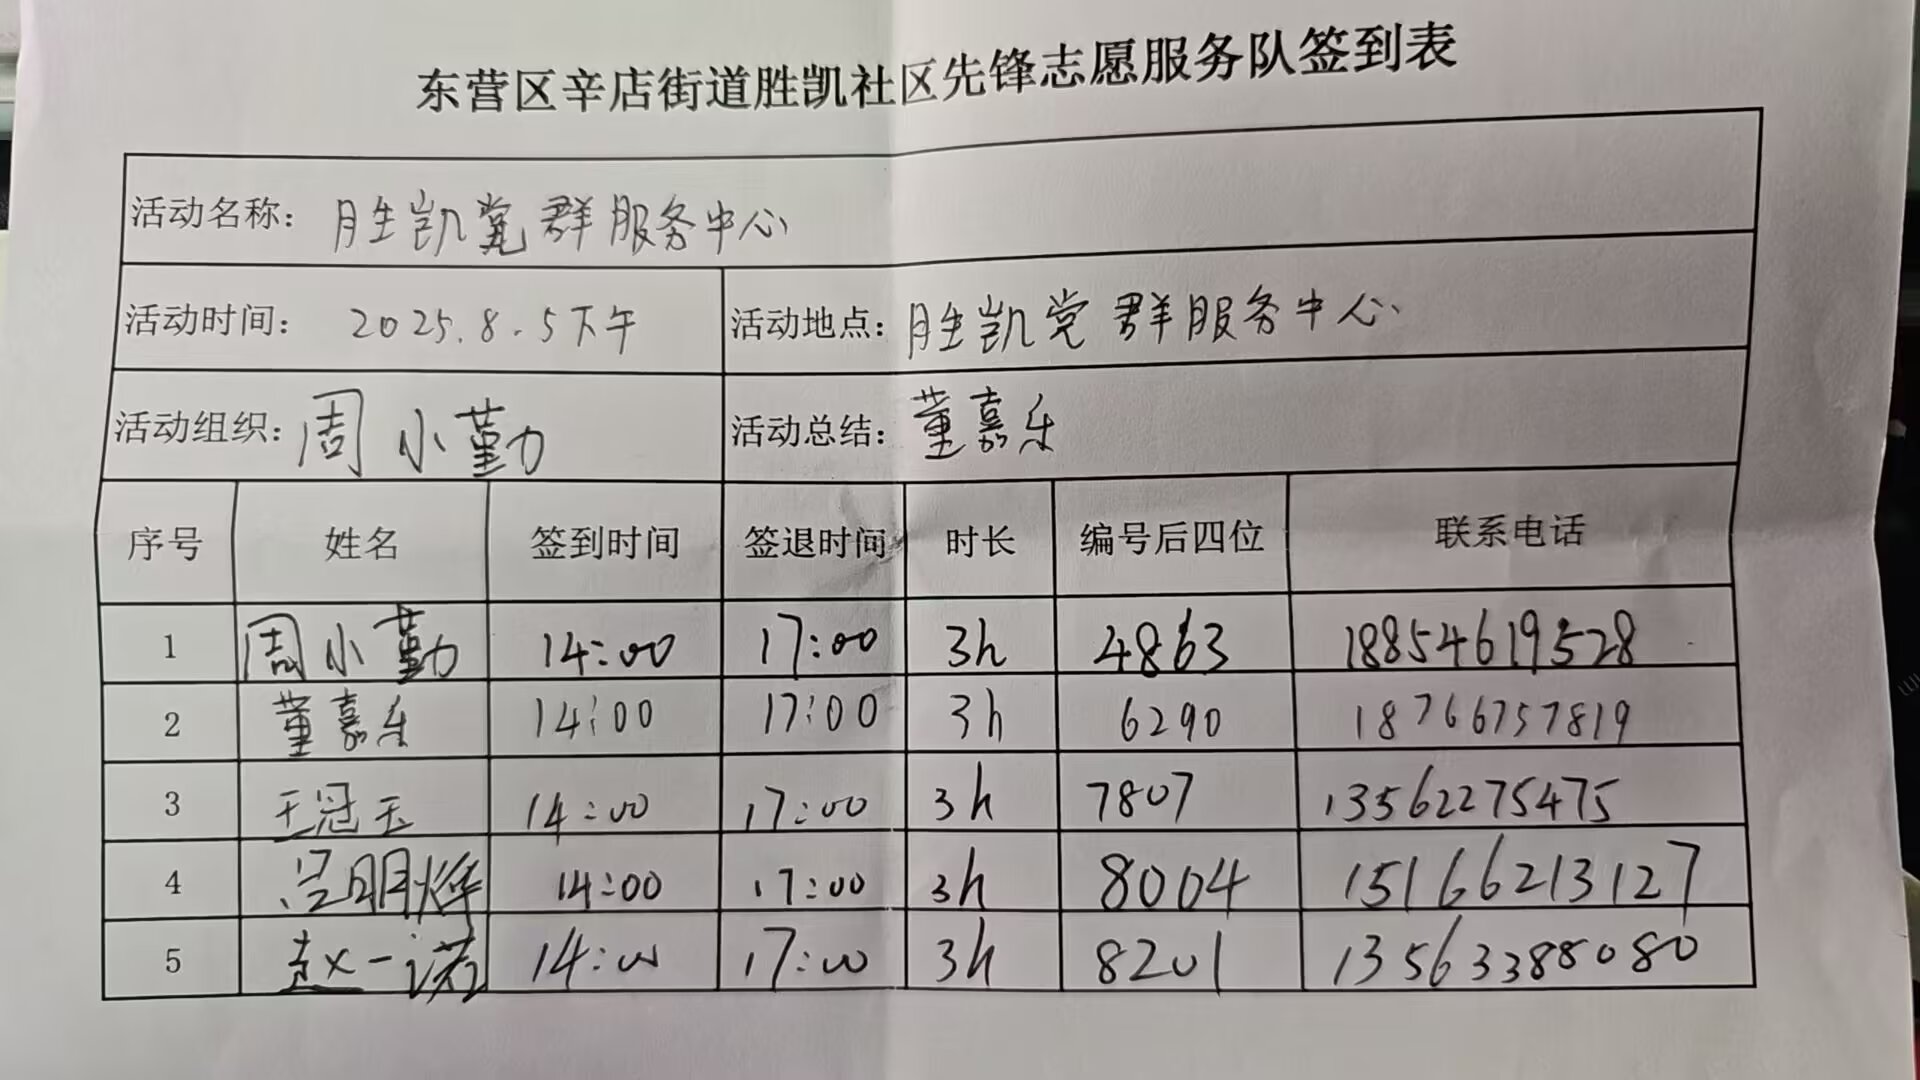 东营区辛店街道胜凯社区先锋志愿服务队签到表
活动名称：胜凯党群服务中心
活动时间：2025.8.5下午 活动地点：胜凯党群服务中心
活动组织：周小勤 活动总结：董嘉乐
序号 姓名 签到时间 签退时间 时长 编号后四位 联系电话
1 周小勤 14:00 17:00 3h 4863 18854619528
2 董嘉乐 14:00 17:00 3h 6290 18766757819
3 王冠玉 14:00 17:00 3h 7807 13562275475
4 吕明烨 14:00 17:00 3h 8004 15166213127
5 赵一诺 14:00 17:00 3h 8201 13563388080